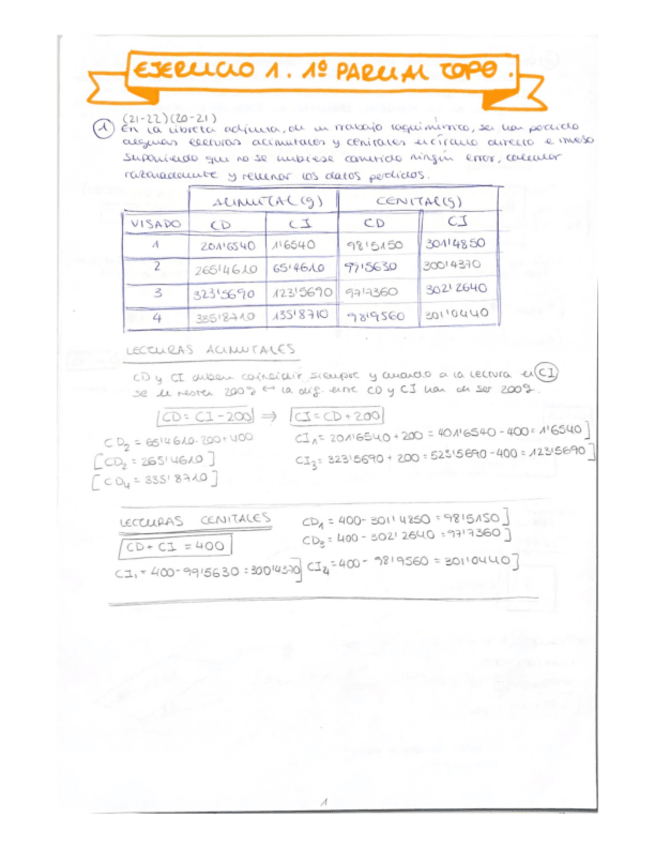 EJERCICIO 1. 1º PARCIAL TOPO.
(21-22)(20-21)
1 En la libreta adjunta, de un trabajo taquimétrico, se han perdido
algunas lecturas acimutales y cenitales en círculo directo e inverso
suponiendo que no se hubiese cometido ningún error, calcular
razonadamente y rellenar los datos perdidos.
ACIMUTAL (g) CENITAL (g)
VISADO CD CI CD CI
1 201'6540 1'6540 98'5150 301'4850
2 265'4610 65'4610 99'5630 300'4370
3 323'5690 123'5690 97'7360 302'2640
4 335'8710 135'8710 98'9560 301'0440
LECTURAS ACIMUTALES
CD y CI deben coincidir siempre y cuando a la lectura en CI
se le resten 200g ↔ la dif. entre CD y CI han de ser 200g.
CD = CI - 200 ⇒ CI = CD + 200
CD₂ = 65'4610 - 200 + 400 CI₁ = 201'6540 + 200 = 401'6540 - 400 = 1'6540]
[CD₂ = 265'4610] CI₃ = 323'5690 + 200 = 523'5690 - 400 = 123'5690]
[CD₄ = 335'8710]
LECTURAS CENITALES CD₁ = 400 - 301'4850 = 98'5150]
CD + CI = 400 CD₃ = 400 - 302'2640 = 97'7360]
CI₁ = 400 - 99'5630 = 300'4370] CI₄ = 400 - 98'9560 = 301'0440]
1